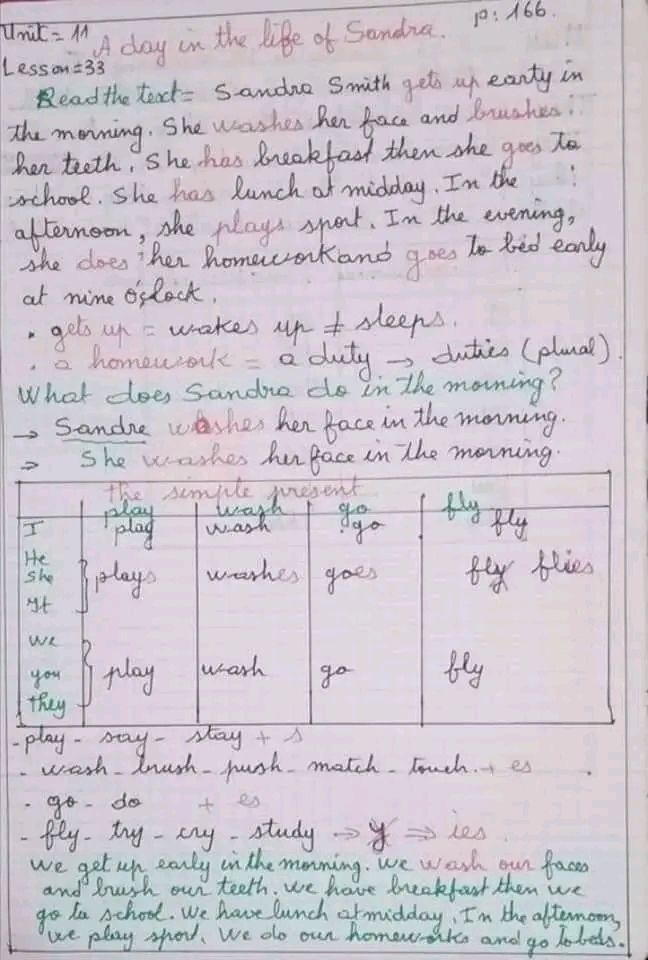 Unit = 11 p: 166.
A day in the life of Sandra.
Lesson=33
Read the text= Sandra Smith gets up early in
the morning. She washes her face and brushes
her teeth. She has breakfast then she goes to
school. She has lunch at midday. In the
afternoon, she plays sport. In the evening,
she does her homework and goes to bed early
at nine o'clock.
• gets up = wakes up ≠ sleeps.
• a homework = a duty → duties (plural).
What does Sandra do in the morning?
→ Sandre washes her face in the morning.
⇒ She washes her face in the morning.
the simple present
play wash go fly
I play wash go fly
He
She plays washes goes fly flies
It
We
you play wash go fly
they
- play - say - stay + s
- wash - brush - push - match - touch. + es
- go - do + es
- fly - try - cry - study ⇒ y ⇒ ies
We get up early in the morning. We wash our faces
and brush our teeth. We have breakfast then we
go to school. We have lunch at midday. In the afternoon,
we play sport. We do our homeworks and go to beds.